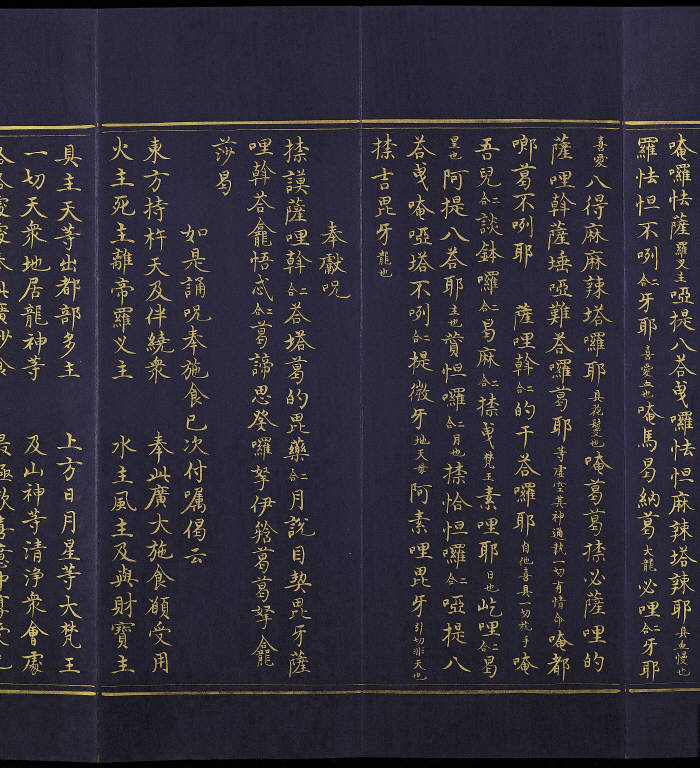 唵囉怯薩羅义主啞提八荅曳囉怯怛麻辣塔辣耶具血慢也
羅怯怛不咧二合牙耶喜愛血也唵馬曷納葛大龍必哩二合牙耶
喜愛八得麻麻辣塔囉耶具花鬘也唵葛葛捺必薩哩的
薩哩斡薩埵啞難荅囉葛耶等虛空其神通執一切有情命唵都
嘟葛不咧耶 薩哩斡二合的干荅囉耶自他喜具一切於手唵
吾兒二合談鉢囉二合曷麻二合捺曳梵王素哩耶日也屹哩二合曷
星也阿提八荅耶主也贊怛囉二合月也捺恰怛囉二合啞提八
荅曳唵啞塔不咧二合提微牙地天母阿素哩毘牙引切非天也
捺吉毘牙龍也
奉獻呪
捺謨薩哩斡二合荅塔葛的毘藥二合月說目契毘牙薩
哩斡荅龕悟忒二合葛諦思癹囉拏伊䤴葛葛拏龕
莎曷
如是誦呪奉施食已次付囑偈云
東方持杵天及伴繞衆 奉此廣大施食願受用
火主死主離帝羅义主 水主風主及與財寶主
具主天等出都部多主 上方日月星等大梵王
一切天衆地居龍神等 及山神等清淨衆會處